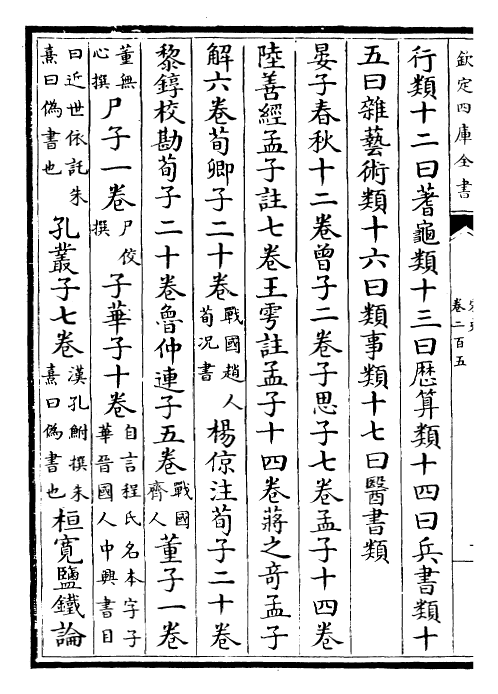 欽定四庫全書
卷二百五
行類十二曰蓍龜類十三曰厯算類十四曰兵書類十
五曰雜藝術類十六曰類事類十七曰醫書類
晏子春秋十二卷曾子二卷子思子七卷孟子十四卷
陸善經孟子註七卷王雱註孟子十四卷蔣之竒孟子
解六卷荀卿子二十卷戰國趙人荀况書楊倞注荀子二十卷
黎錞校勘荀子二十卷魯仲連子五卷戰國齊人董子一卷
董無心撰尸子一卷尸佼撰子華子十卷自言程氏名本字子華晉國人中興書目
曰近世依託朱熹曰偽書也孔叢子七卷漢孔鮒撰朱熹曰偽書也桓寛鹽鐵論